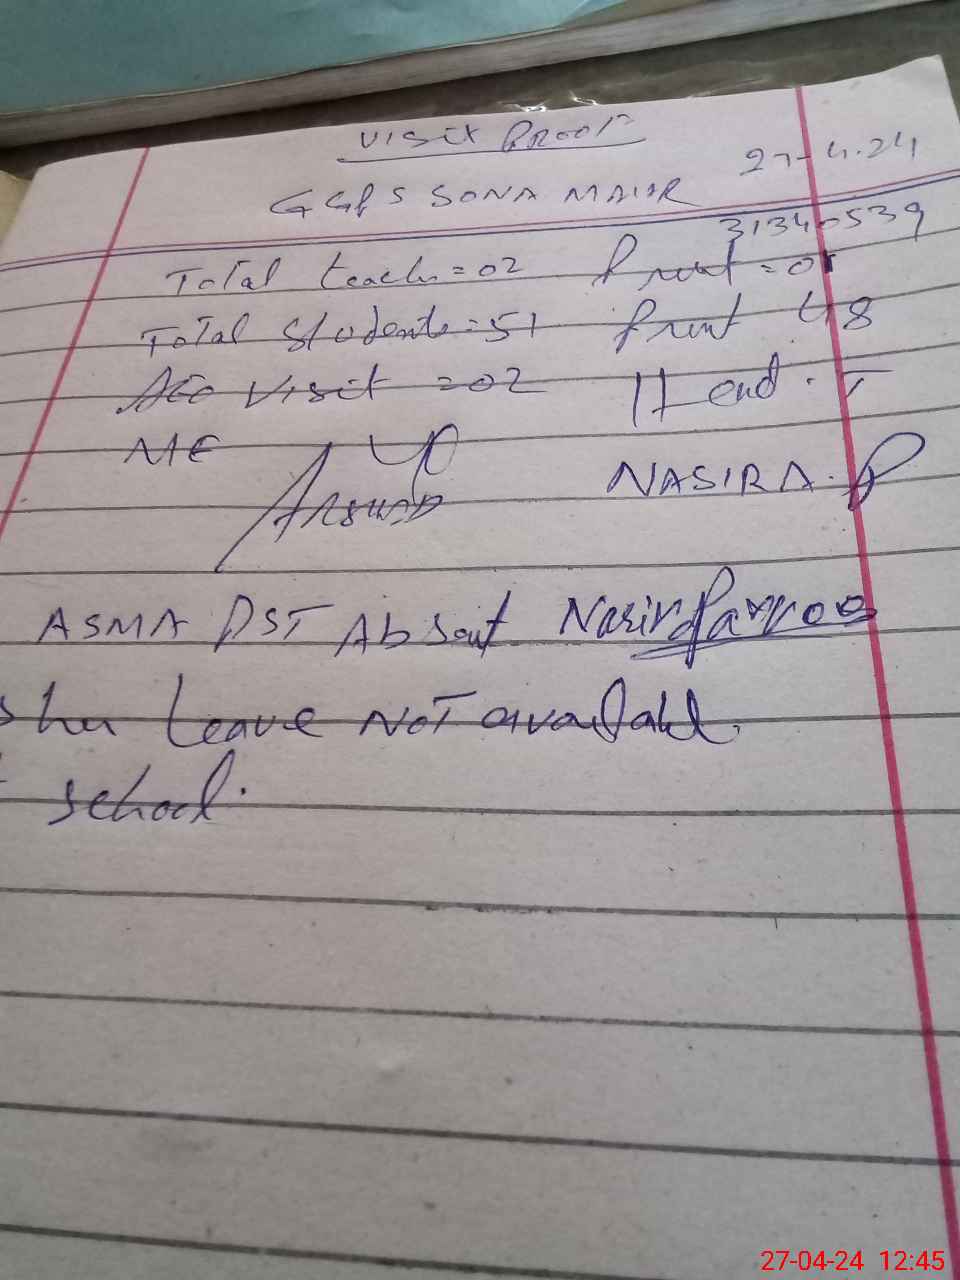 Visit Proof
27-4-24
GGPS SONA MAHAR
31340539
Total teach = 02 Prent = 01
Total Students = 51 Prent 48
AEO Visit = 02 Head . T
ME
NASIRA . P
ASMA PST Absent Nasira Parveen
her Leave NOT available
school.
27-04-24 12:45